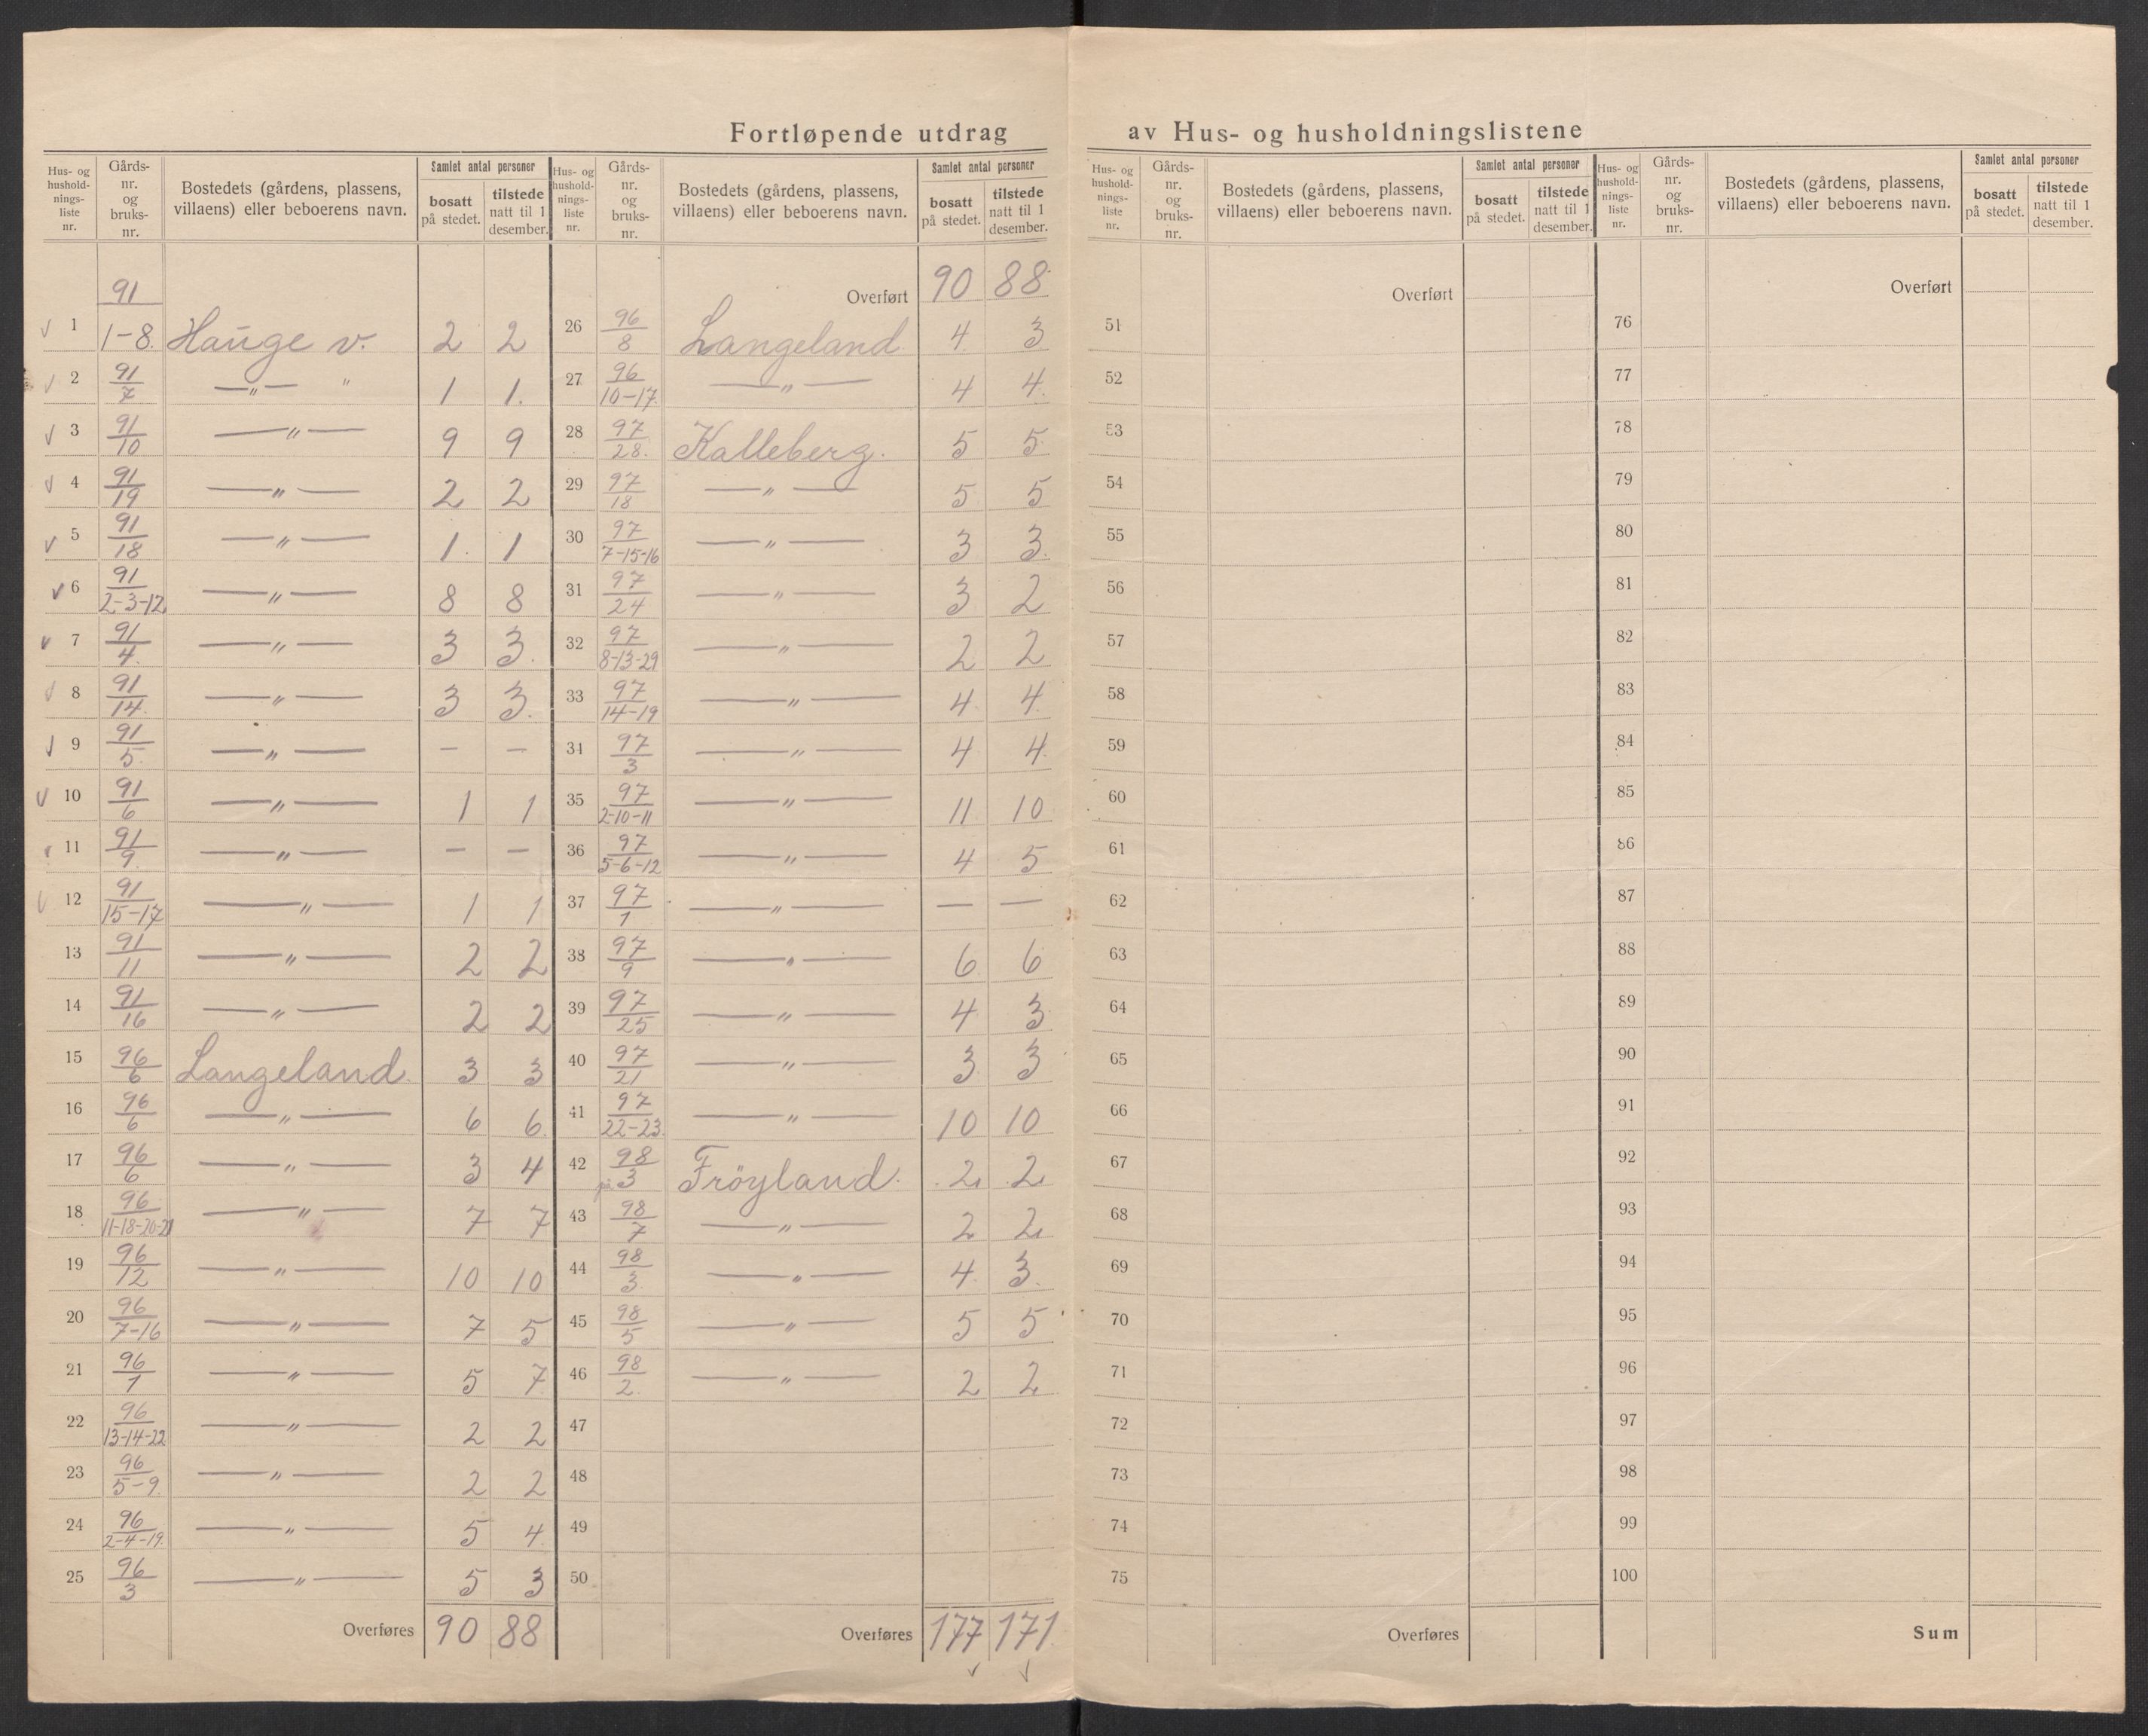 Fortløpende utdrag av Hus- og husholdningslistene
Hus- og hushold-nings-liste nr. | Gårds-nr. og bruks-nr. | Bostedets (gårdens, plassens, villaens) eller beboerens navn. | Samlet antal personer | bosatt på stedet. | tilstede natt til 1 desember.
1 91/1-8. Hauge v. 2 2
2 91/7 —„— " 1 1.
3 91/10 —„— 9 9
4 91/19 —„— 2 2
5 91/18 —„— 1. 1
6 91/2-3-12 —„— 8 8
7 91/4. —„— 3 3.
8 91/14. —„— 3 3.
9 91/5. —„— – –
10 91/6 —„— 1 1
11 91/9. —„— – –
12 91/15-17 —„— 1 1
13 91/11 —„— 2 2
14 91/16 —„— 2 2
15 96/6 Langeland. 3 3
16 96/6 —„— 6 6.
17 96/6 —„— 3 4
18 96/11-18-20-21 —„— 7 7
19 96/12 —„— 10 10
20 96/7-16 —„— 7 5
21 96/1 —„— 5 7
22 96/13-14-22 —„— 2 2
23 96/5-9. —„— 2 2
24 96/2-4-19. —„— 5 4
25 96/3 —„— 5 3
Overføres 90 88
Hus- og hushold-nings-liste nr. | Gårds-nr. og bruks-nr. | Bostedets (gårdens, plassens, villaens) eller beboerens navn. | Samlet antal personer | bosatt på stedet. | tilstede natt til 1 desember.
Overført 90 88
26 96/8 Langeland 4 3
27 96/10-17. —„— 4 4.
28 97/28. Kalleberg. 5 5
29 97/18 —„— 5 5
30 97/7-15-16 —„— 3 3.
31 97/24 —„— 3 2
32 97/8-13-29 —„— 2 2
33 97/14-19 —„— 4 4.
34 97/3 —„— 4 4.
35 97/2-10-11 —„— 11 10
36 97/5-6-12 —„— 4 5
37 97/1 —„— — —
38 97/9 —„— 6 6
39 97/25 —„— 4 3
40 97/21 —„— 3 3
41 97/22-23. —„— 10 10
42 98/3 Fröyland. 2 2
43 98/7 —„— 2 2
44 98/3. —„— 4 3.
45 98/5 —„— 5 5
46 98/2. —„— 2 2
47
48
49
50
Overføres 177 171
Hus- og hushold-nings-liste nr. | Gårds-nr. og bruks-nr. | Bostedets (gårdens, plassens, villaens) eller beboerens navn. | Samlet antal personer | bosatt på stedet. | tilstede natt til 1 desember.
Overført
51
52
53
54
55
56
57
58
59
60
61
62
63
64
65
66
67
68
69
70
71
72
73
74
75
Overføres
Hus- og hushold-nings-liste nr. | Gårds-nr. og bruks-nr. | Bostedets (gårdens, plassens, villaens) eller beboerens navn. | Samlet antal personer | bosatt på stedet. | tilstede natt til 1 desember.
Overført
76
77
78
79
80
81
82
83
84
85
86
87
88
89
90
91
92
93
94
95
96
97
98
99
100
Sum